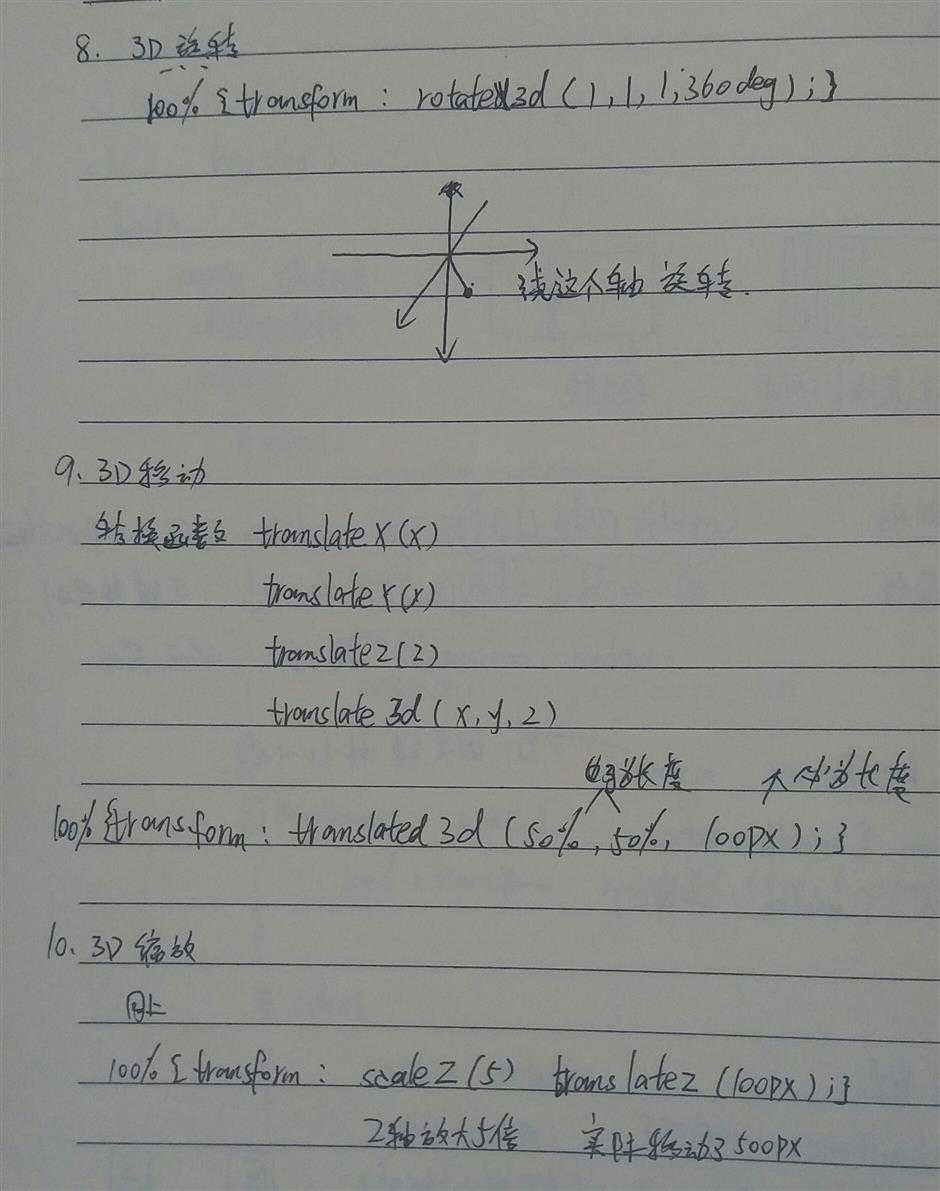 8. 3D 旋转
100% {transform : rotate3d (1, 1, 1, 360deg) ; }
绕这个轴 旋转.
9. 3D移动
转换函数 translate X (x)
translate Y (x)
translate Z (Z)
translate 3d ( x, y, z )
长度 长度
100% {transform : translated 3d ( 50%, 50%, 100px ) ; }
10. 3D 缩放
同上
100% { transform : scale Z (5) translate Z (100px) ; }
Z轴放大5倍 实际移动了500px